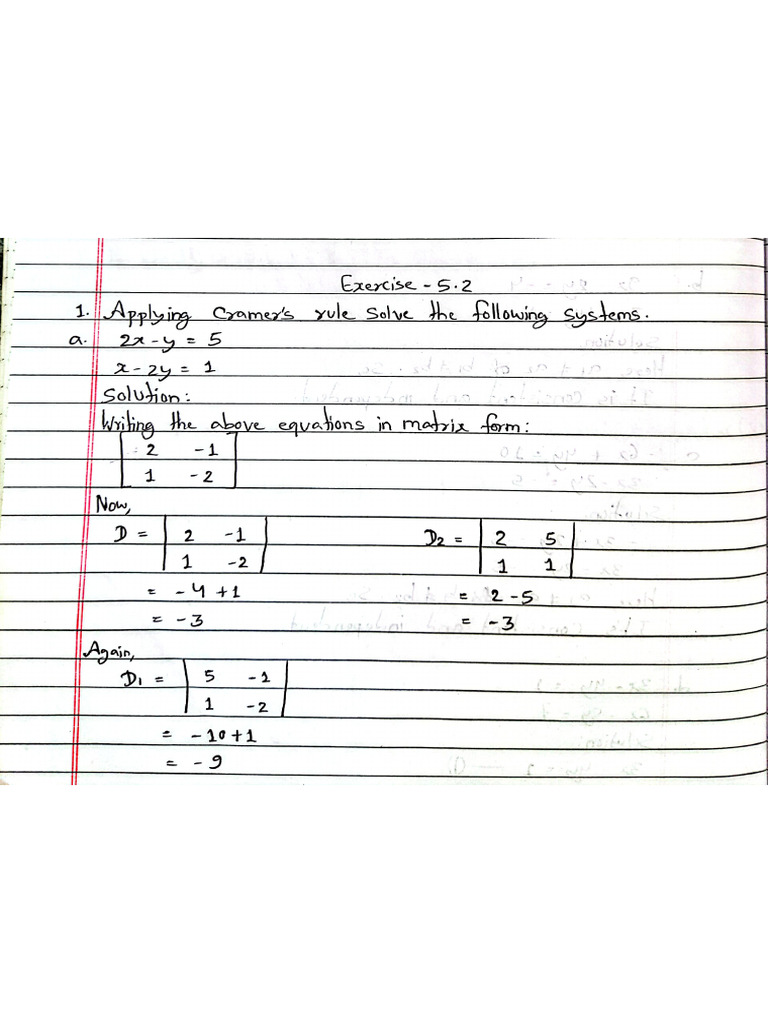 Exercise - 5.2
1. Applying Cramer's rule Solve the following systems.
a. 2x - y = 5
x - 2y = 1
Solution:
Writing the above equations in matrix form:
2 -1
1 -2
Now,
D = | 2 -1 | D2 = | 2 5 |
| 1 -2 | | 1 1 |
= -4 + 1 = 2 - 5
= -3 = -3
Again,
D1 = | 5 -1 |
| 1 -2 |
= -10 + 1
= -9